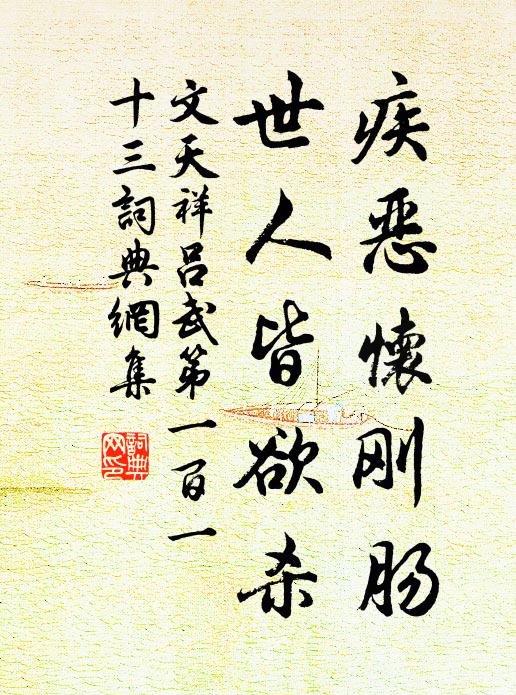 疾恶懷刚肠
世人皆欲杀
文天祥吕武第一百一
十三詞典網集
詞典
网印